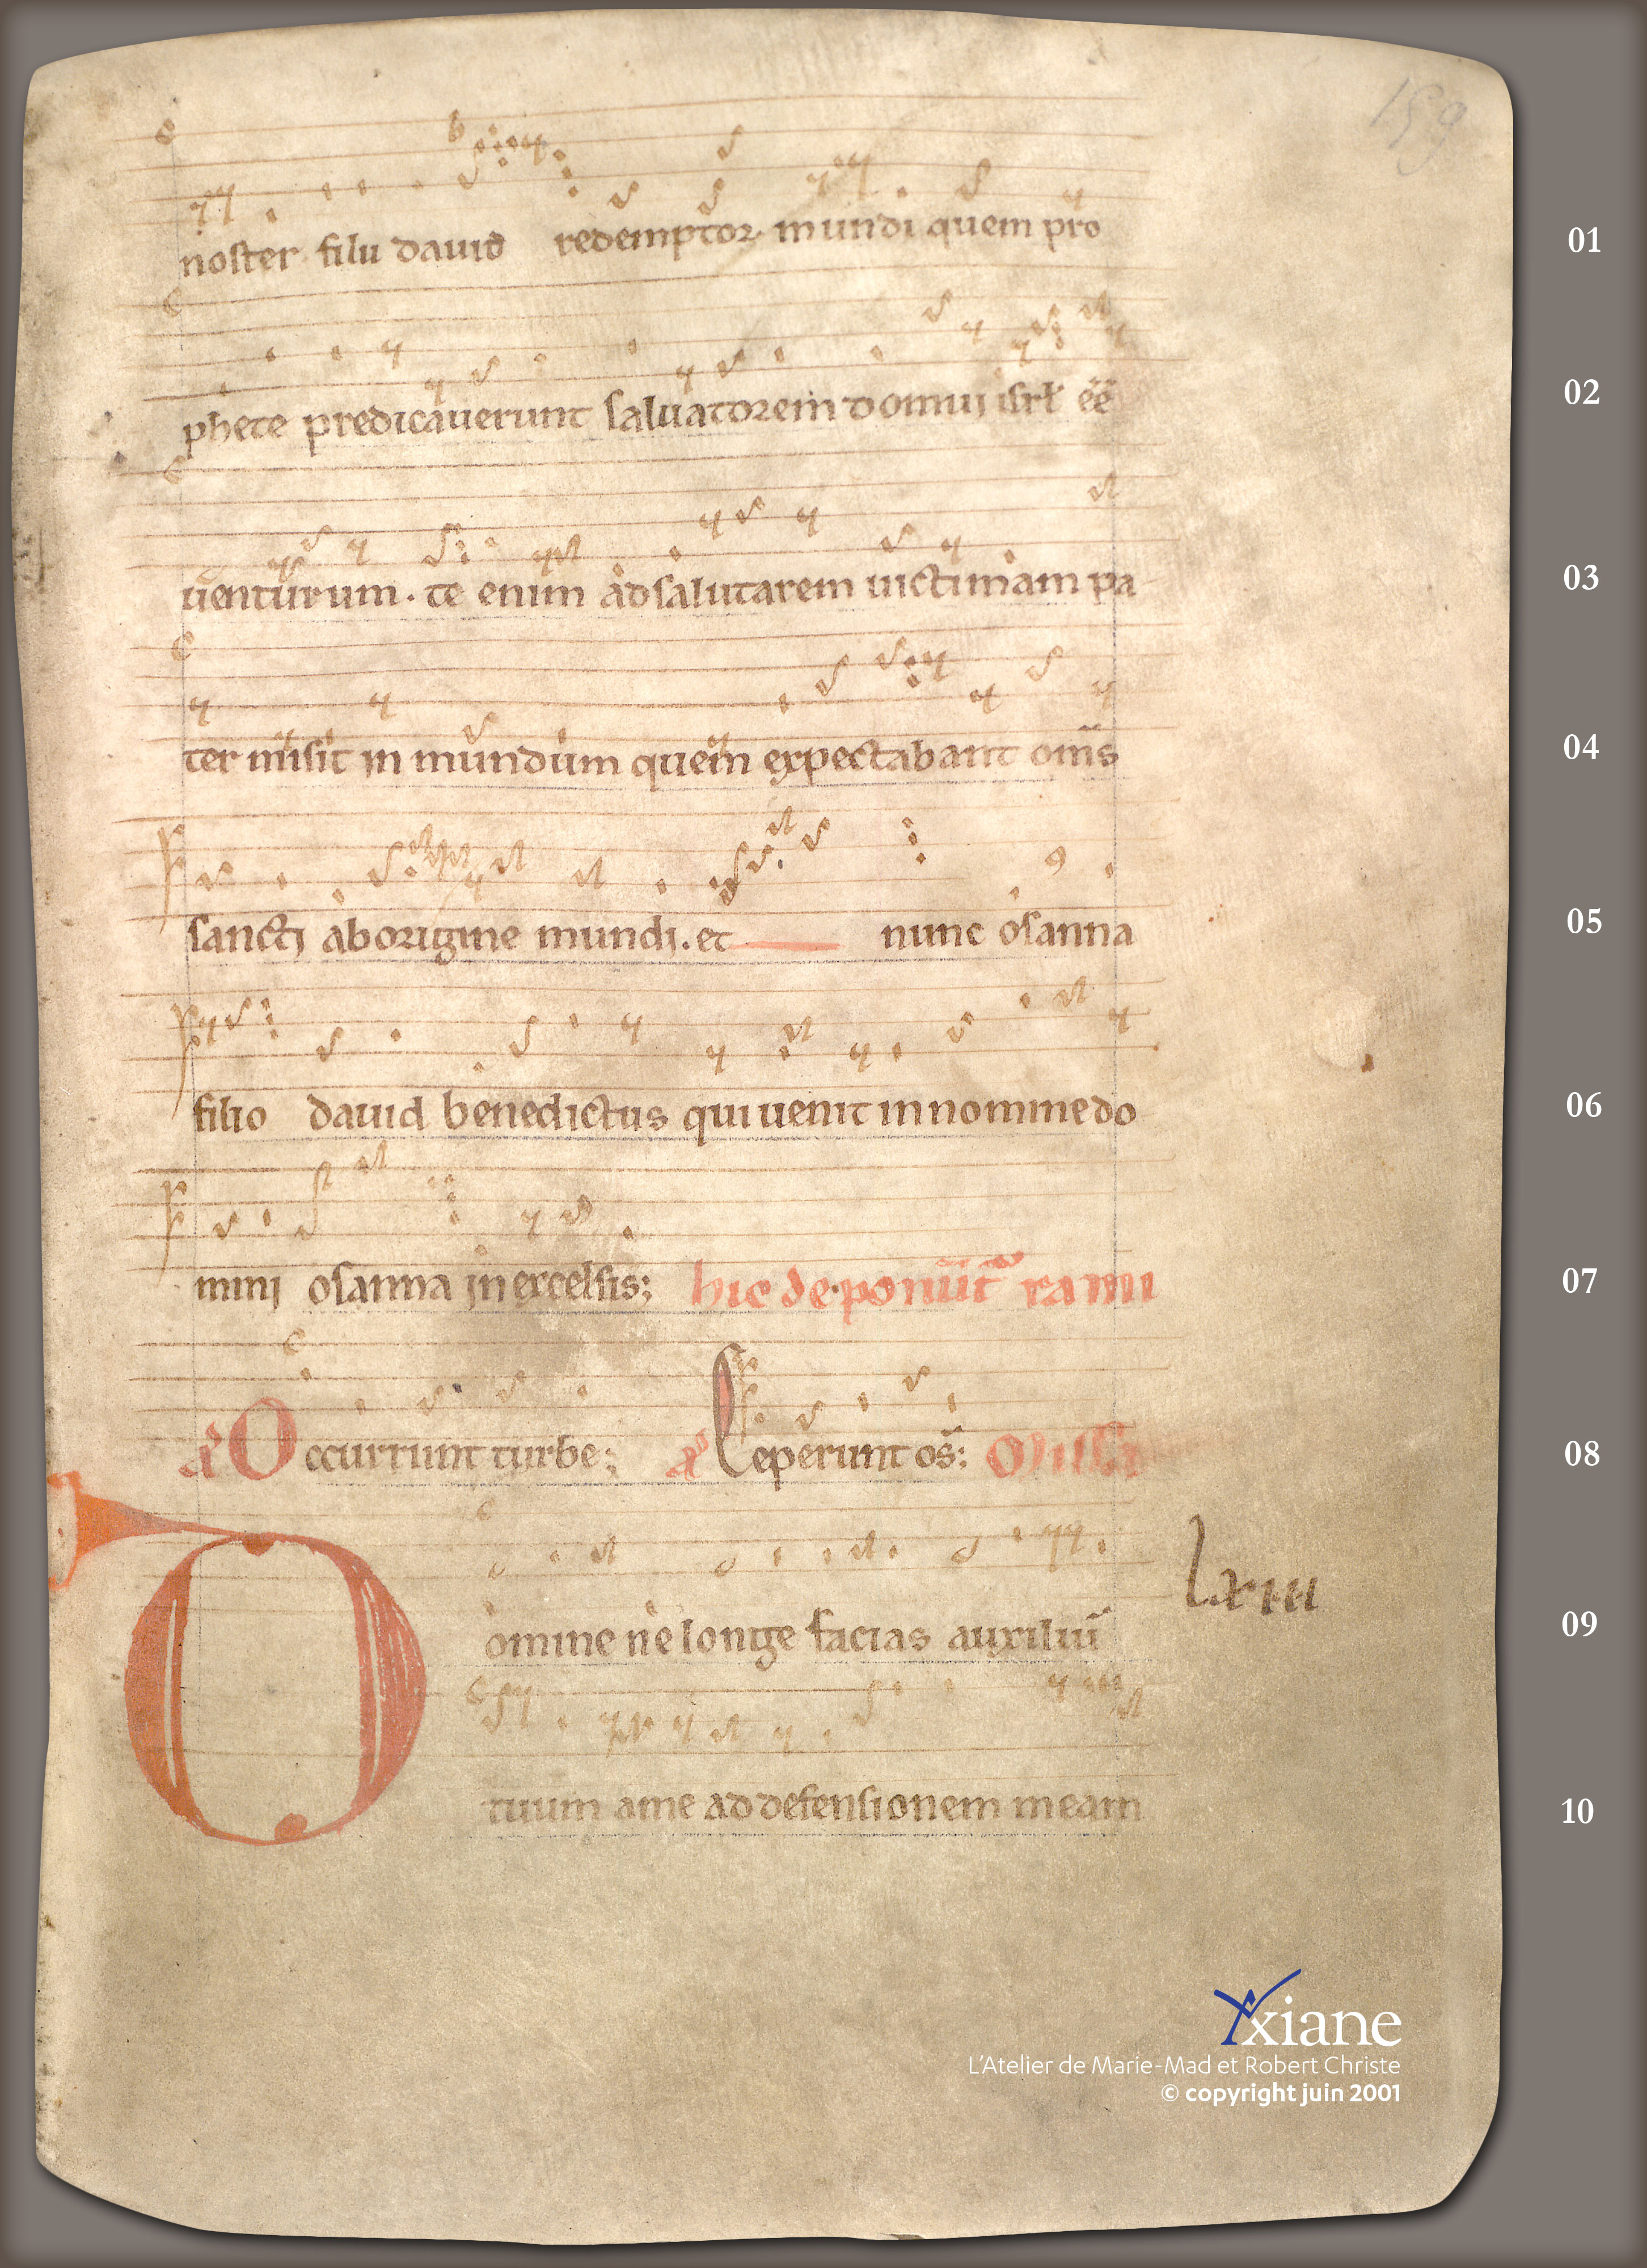 159
noster filii dauid redemptor mundi quem pro 01
phete predicauerunt saluatorem domui isrł ēē 02
uenturum. te enim ad salutarem uictimam pa 03
ter misit in mundum quem expectabant om̄s 04
sancti ab origine mundi. et nunc osanna 05
filio dauid benedictus qui uenit in nomine do 06
mini osanna in excelsis; hic deponūt rami 07
a Occurrunt turbe; a Ceperunt os̄: 08
Domine ne longe facias auxiliū lxiii 09
tuum a me ad defensionem meam 10
xiane
L'Atelier de Marie-Mad et Robert Christe
© copyright juin 2001